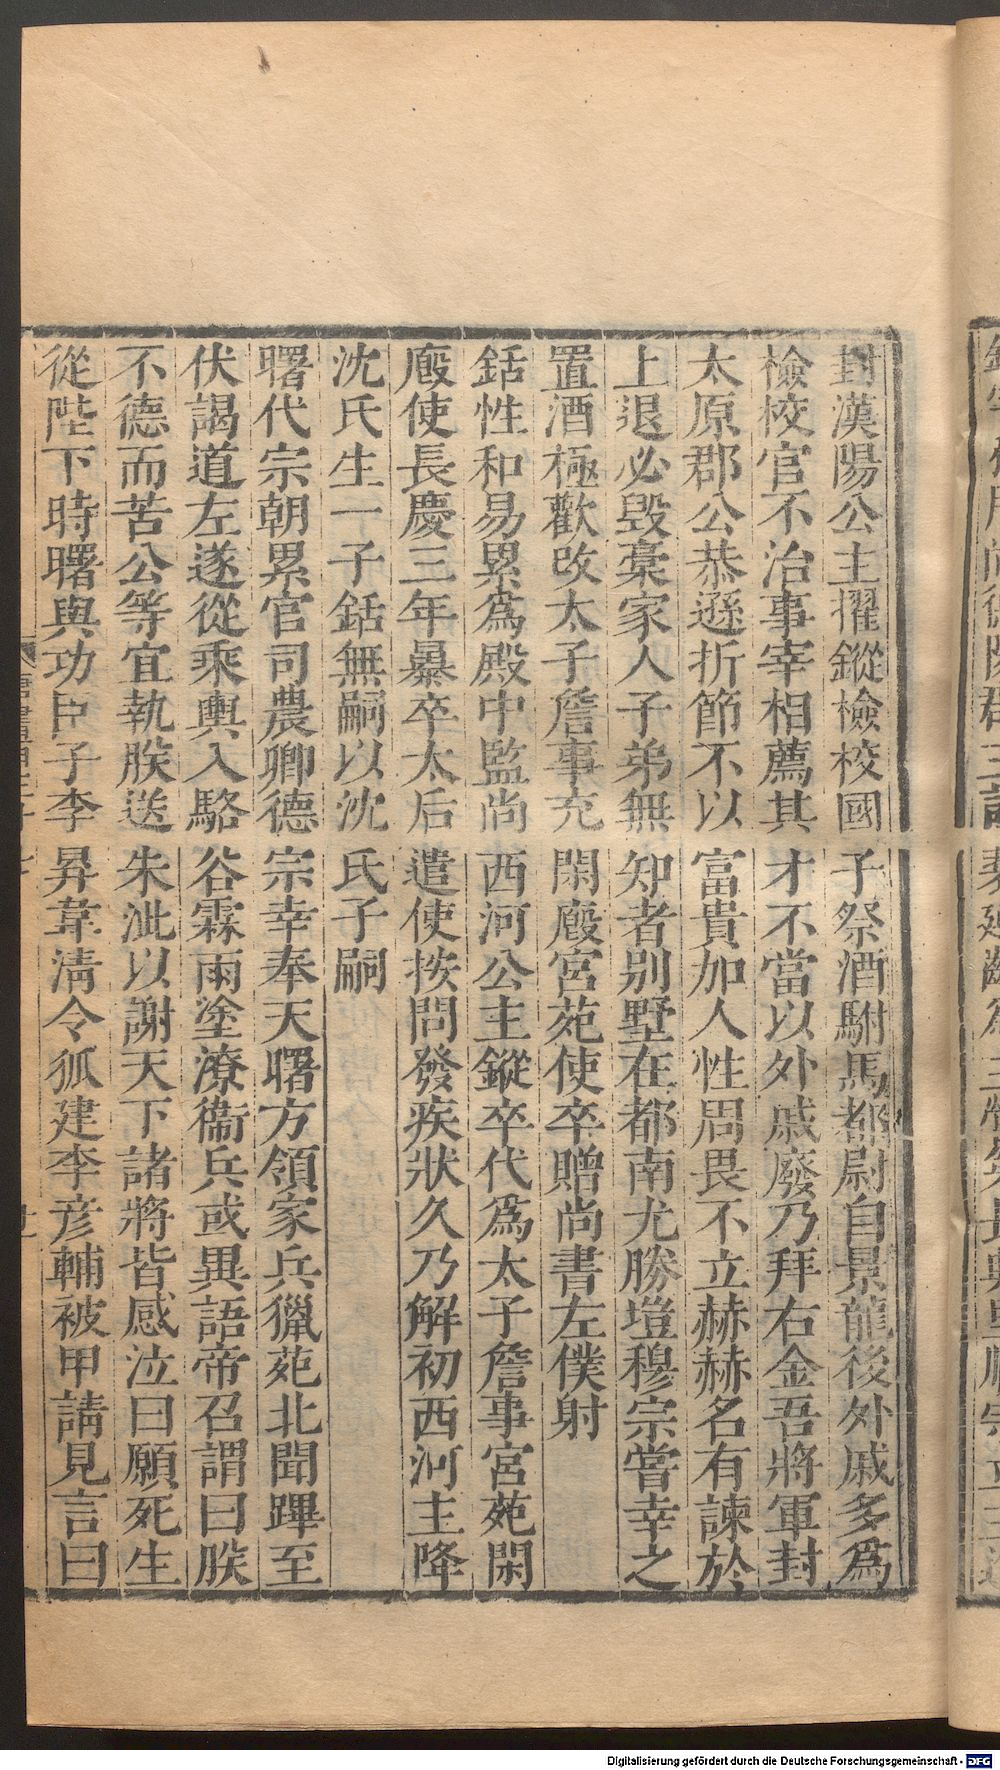 封漢陽公主擢鏦檢校國子祭酒駙馬都尉自景龍後外戚多爲
檢校官不治事宰相薦其才不當以外戚廢乃拜右金吾將軍封
太原郡公恭遜折節不以富貴加人性周畏不立赫赫名有諫於
上退必毁藁家人子弟無知者别墅在都南尤勝塏穆宗嘗幸之
置酒極歡改太子詹事充閑廄宮苑使卒贈尚書左僕射
銛性和易累爲殿中監尚西河公主鏦卒代爲太子詹事宮苑閑
廄使長慶三年暴卒太后遣使按問發疾狀久乃解初西河主降
沈氏生一子銛無嗣以沈氏子嗣
曙代宗朝累官司農卿德宗幸奉天曙方領家兵獵苑北聞蹕至
伏謁道左遂從乘輿入駱谷霖雨塗潦衞兵或異語帝召謂曰朕
不德而苦公等宜執朕送朱泚以謝天下諸將皆感泣曰願死生
從陛下時曙與功臣子李昇韋清令狐建李彦輔被甲請見言曰
Digitalisierung gefördert durch die Deutsche Forschungsgemeinschaft - DFG